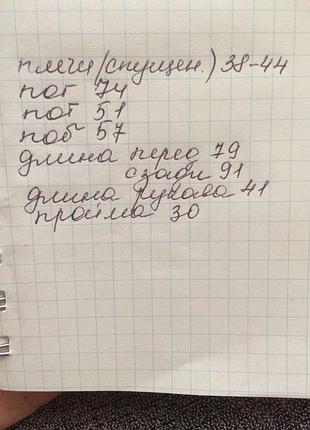 плечи (спущен.) 38-44
пог 74
пот 51
поб 57
длина перед 79
сзади 91
длина рукава 41
пройма 30